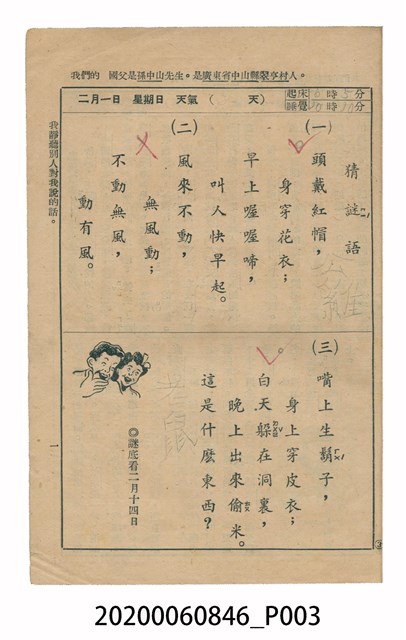 我們的　國父是孫中山先生。是廣東省中山縣翠亨村人。
二月一日　星期日　天氣（　　天）
起床　時　分
睡覺　時　分
猜謎語
(一)
頭戴紅帽，
身穿花衣；
早上喔喔啼，
叫人快早起。
公雞
(二)
風來不動，
無風動；
不動無風，
動有風。
(三)
嘴上生鬍子，
身上穿皮衣；
白天躲在洞裏，
晚上出來偷米。
這是什麼東西？
老鼠
◎謎底看二月十四日
我靜聽別人對我說的話。
一
20200060846_P003